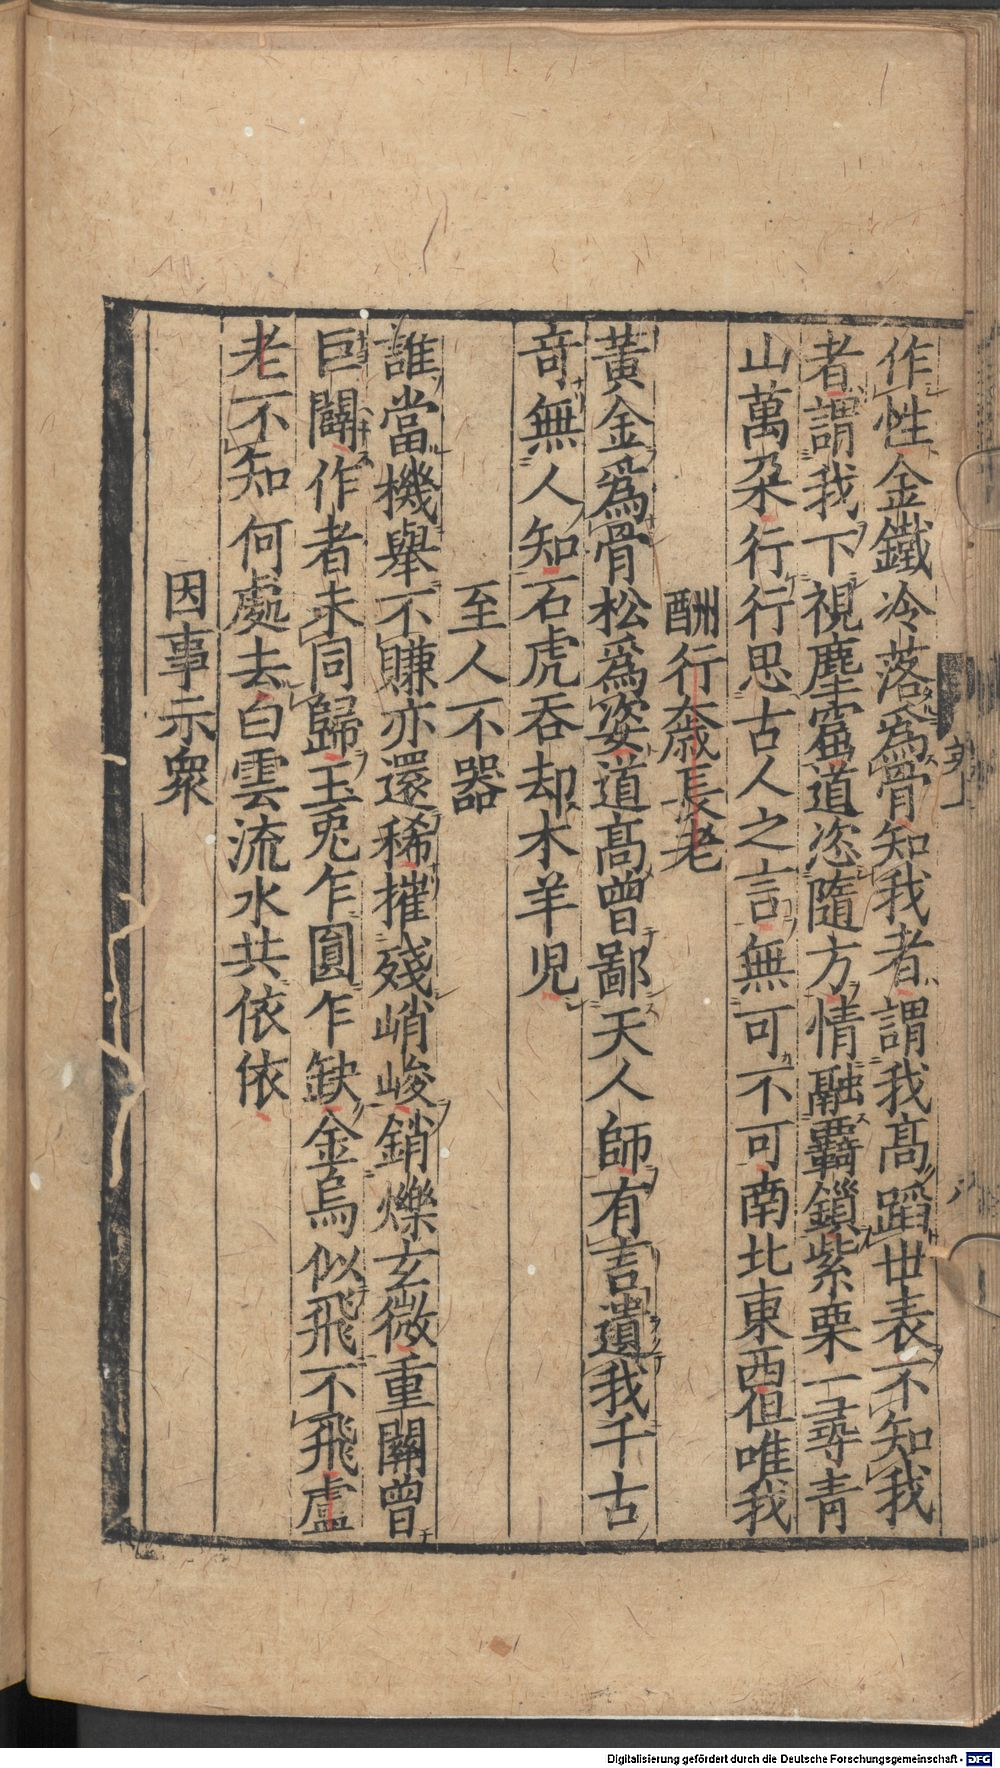 作性金鐵冷落爲骨知我者謂我髙蹈世表不知我
者謂我下視塵寰道恣隨方情融羈鎖紫栗一尋青
山萬朶行行思古人之言無可不可南北東西但唯我
酬行巖長老
黃金爲骨松爲姿道髙曾鄙天人師有言遺我千古
竒無人知石虎吞却木羊児
至人不器
誰當機舉不賺亦還稀摧殘峭峻銷爍玄微重關曾
巨闢作者未同歸玉兎乍圓乍缺金烏似飛不飛盧
老不知何處去白雲流水共依依
因事示衆
Digitalisierung gefördert durch die Deutsche Forschungsgemeinschaft - DFG